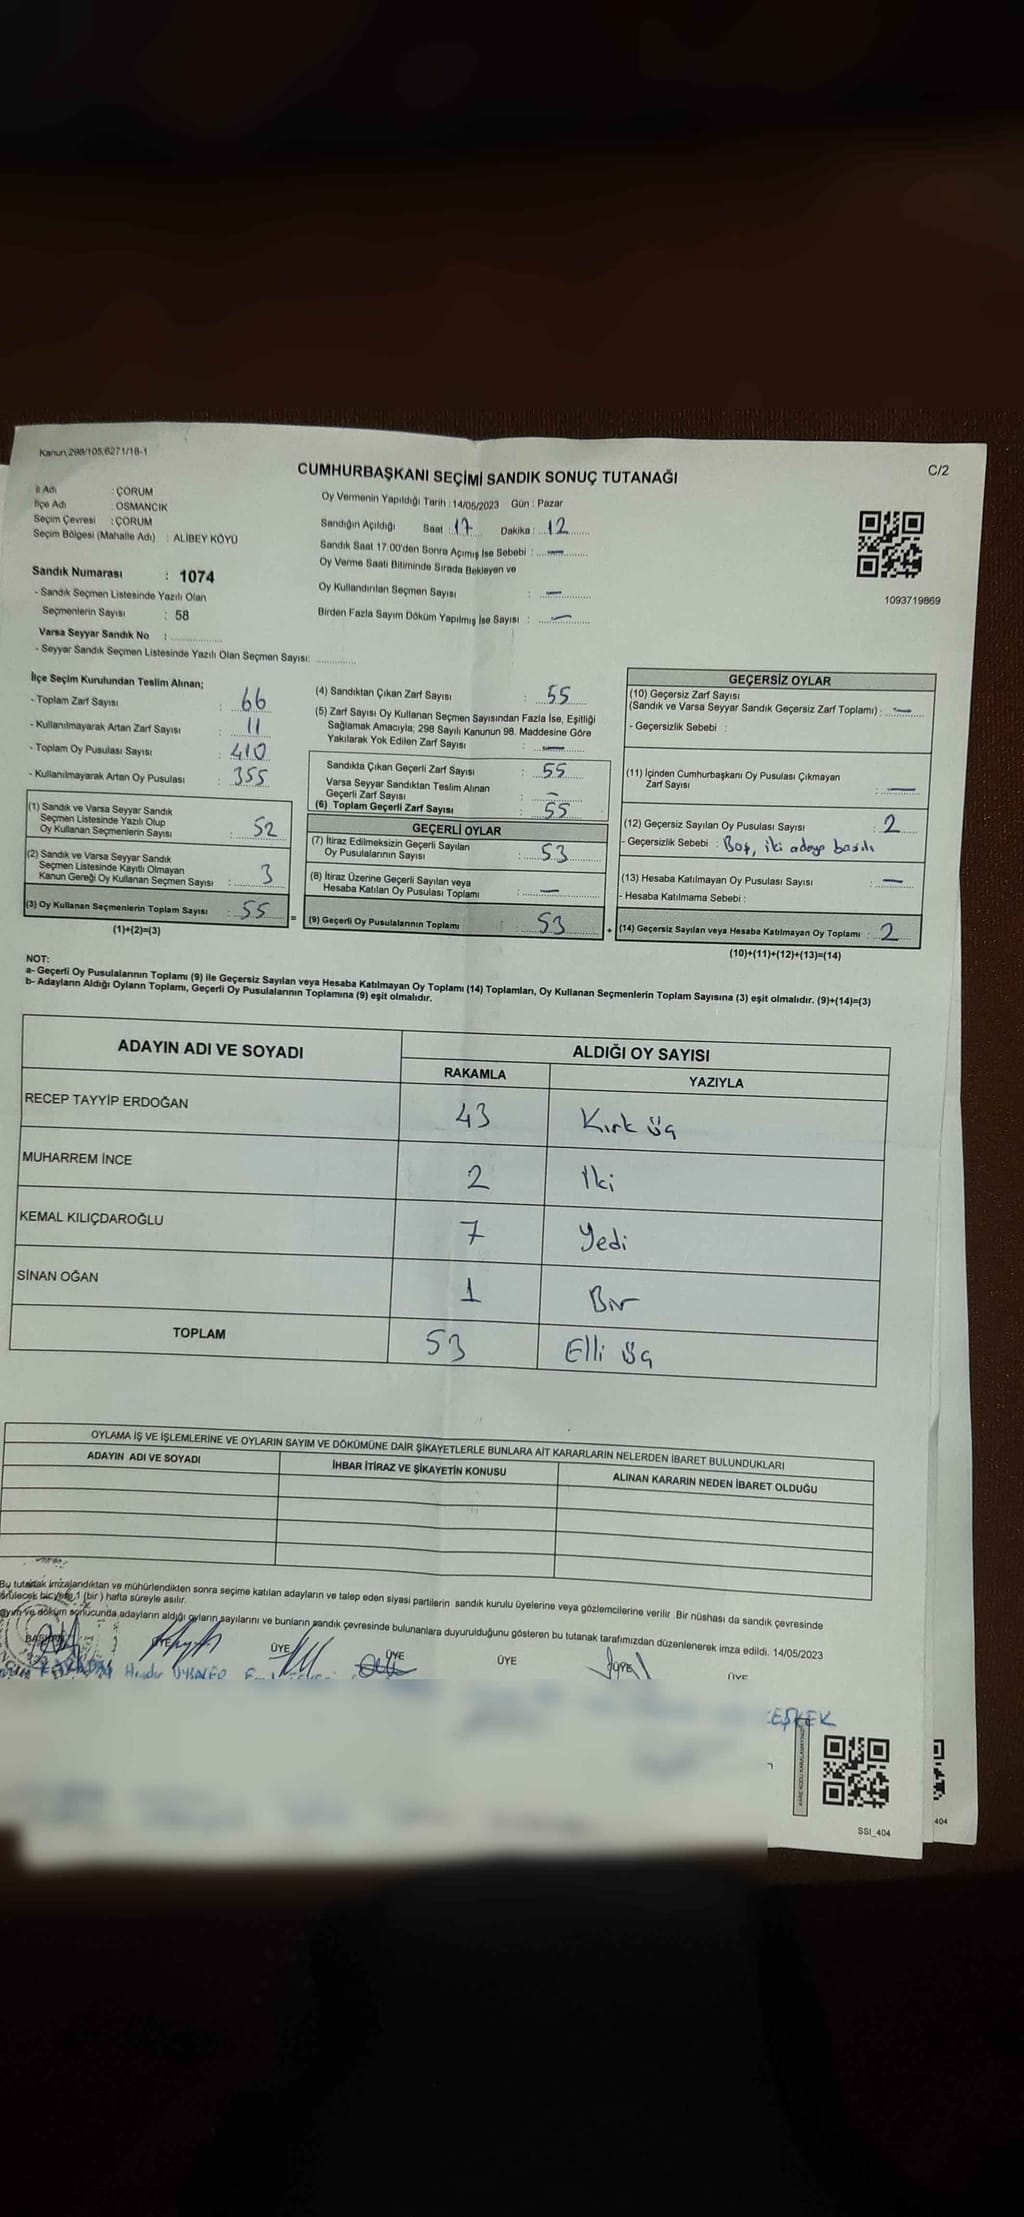 Kanun,298/105,6271/18-1
C/2
CUMHURBAŞKANI SEÇİMİ SANDIK SONUÇ TUTANAĞI
İl Adı : ÇORUM
İlçe Adı : OSMANCIK
Seçim Çevresi : ÇORUM
Seçim Bölgesi (Mahalle Adı) : ALİBEY KÖYÜ
Sandık Numarası : 1074
- Sandık Seçmen Listesinde Yazılı Olan
Seçmenlerin Sayısı : 58
Varsa Seyyar Sandık No : ..............
- Seyyar Sandık Seçmen Listesinde Yazılı Olan Seçmen Sayısı: ............
Oy Vermenin Yapıldığı Tarih : 14/05/2023 Gün : Pazar
Sandığın Açıldığı Saat : 17 Dakika : 12
Sandık Saat 17:00'den Sonra Açımış İse Sebebi : —
Oy Verme Saati Bitiminde Sırada Bekleyen ve
Oy Kullandırılan Seçmen Sayısı : —
Birden Fazla Sayım Döküm Yapılmış İse Sayısı : —
1093719869
İlçe Seçim Kurulundan Teslim Alınan;
- Toplam Zarf Sayısı : 66
- Kullanılmayarak Artan Zarf Sayısı : 11
- Toplam Oy Pusulası Sayısı : 410
- Kullanılmayarak Artan Oy Pusulası : 355
(1) Sandık ve Varsa Seyyar Sandık
Seçmen Listesinde Yazılı Olup
Oy Kullanan Seçmenlerin Sayısı : 52
(2) Sandık ve Varsa Seyyar Sandık
Seçmen Listesinde Kayıtlı Olmayan
Kanun Gereği Oy Kullanan Seçmen Sayısı : 3
(3) Oy Kullanan Seçmenlerin Toplam Sayısı : 55 =
(1)+(2)=(3)
(4) Sandıktan Çıkan Zarf Sayısı : 55
(5) Zarf Sayısı Oy Kullanan Seçmen Sayısından Fazla İse, Eşitliği
Sağlamak Amacıyla; 298 Sayılı Kanunun 98. Maddesine Göre
Yakılarak Yok Edilen Zarf Sayısı : —
Sandıkta Çıkan Geçerli Zarf Sayısı : 55
Varsa Seyyar Sandıktan Teslim Alınan
Geçerli Zarf Sayısı : —
(6) Toplam Geçerli Zarf Sayısı : 55
GEÇERLİ OYLAR
(7) İtiraz Edilmeksizin Geçerli Sayılan
Oy Pusulalarının Sayısı : 53
(8) İtiraz Üzerine Geçerli Sayılan veya
Hesaba Katılan Oy Pusulası Toplamı : —
(9) Geçerli Oy Pusulalarının Toplamı : 53 +
GEÇERSİZ OYLAR
(10) Geçersiz Zarf Sayısı
(Sandık ve Varsa Seyyar Sandık Geçersiz Zarf Toplamı) : —
- Geçersizlik Sebebi :
(11) İçinden Cumhurbaşkanı Oy Pusulası Çıkmayan
Zarf Sayısı : —
(12) Geçersiz Sayılan Oy Pusulası Sayısı : 2
- Geçersizlik Sebebi : Boş, iki adaya basılı
(13) Hesaba Katılmayan Oy Pusulası Sayısı : —
- Hesaba Katılmama Sebebi :
(14) Geçersiz Sayılan veya Hesaba Katılmayan Oy Toplamı : 2
(10)+(11)+(12)+(13)=(14)
NOT:
a- Geçerli Oy Pusulalarının Toplamı (9) ile Geçersiz Sayılan veya Hesaba Katılmayan Oy Toplamı (14) Toplamları, Oy Kullanan Seçmenlerin Toplam Sayısına (3) eşit olmalıdır. (9)+(14)=(3)
b- Adayların Aldığı Oyların Toplamı, Geçerli Oy Pusulalarının Toplamına (9) eşit olmalıdır.
ADAYIN ADI VE SOYADI ALDIĞI OY SAYISI
RAKAMLA YAZIYLA
RECEP TAYYİP ERDOĞAN 43 Kırk üç
MUHARREM İNCE 2 İki
KEMAL KILIÇDAROĞLU 7 Yedi
SİNAN OĞAN 1 Bir
TOPLAM 53 Elli üç
OYLAMA İŞ VE İŞLEMLERİNE VE OYLARIN SAYIM VE DÖKÜMÜNE DAİR ŞİKAYETLERLE BUNLARA AİT KARARLARIN NELERDEN İBARET BULUNDUKLARI
ADAYIN ADI VE SOYADI İHBAR İTİRAZ VE ŞİKAYETİN KONUSU ALINAN KARARIN NEDEN İBARET OLDUĞU
Bu tutanak imzalandıktan ve mühürlendikten sonra seçime katılan adayların ve talep eden siyasi partilerin sandık kurulu üyelerine veya gözlemcilerine verilir. Bir nüshası da sandık çevresinde
bir yere 1 (bir) hafta süreyle asılır.
ve döküm sonucunda adayların aldığı oyların sayılarını ve bunların sandık çevresinde bulunanlara duyurulduğunu gösteren bu tutanak tarafımızdan düzenlenerek imza edildi. 14/05/2023
BAŞKAN ÜYE ÜYE ÜYE ÜYE ÜYE
EŞKEK
SSI_404
404